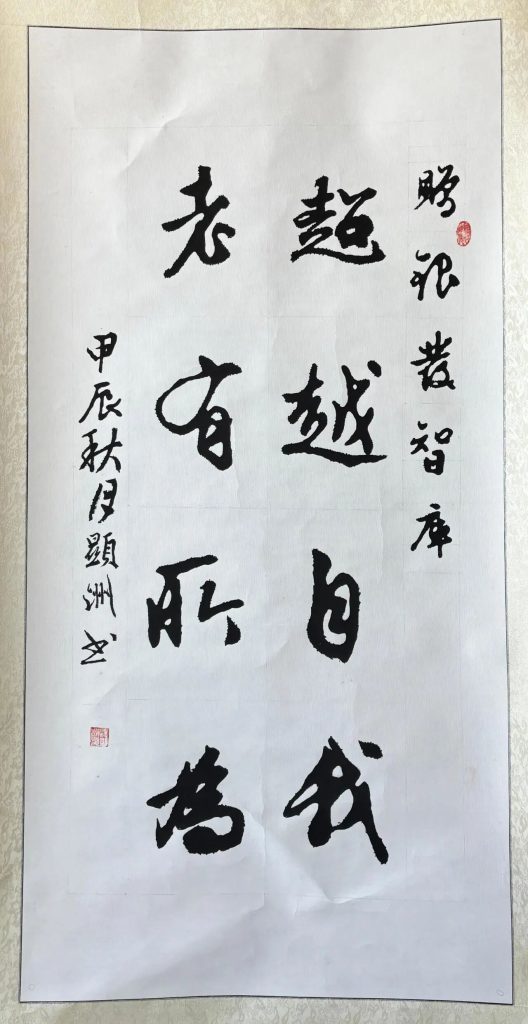 贈銀發智庫
超越自我
老有所為
甲辰秋月顯洲书